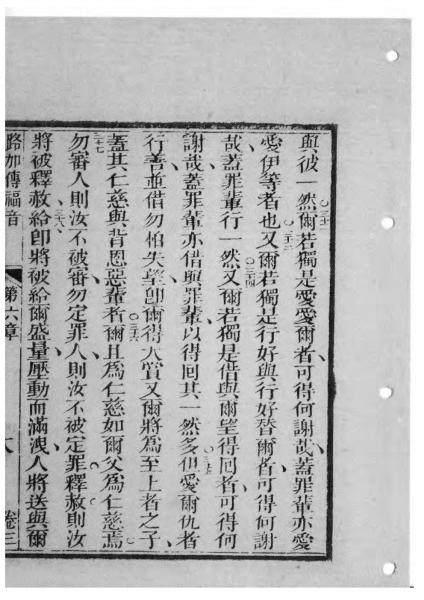 與彼一然爾若獨是愛愛爾者可得何謝哉蓋罪輩亦愛
愛伊等者也又爾若獨是行好與行好替爾者可得何謝
哉蓋罪輩行一然又爾若獨是借與爾望得囘者可得何
謝哉蓋罪輩亦借與罪輩以得囘其一然多但愛爾仇者
行善並借勿怕失望卽爾得大賞又爾將為至上者之子
蓋其仁慈與背恩惡輩者爾且為仁慈如爾父為仁慈焉
勿審人則汝不被審勿定罪人則汝不被定罪釋赦則汝
將被釋赦給卽將被給爾盛量壓動而滿洩人將送與爾
路加傳福音 第六章 八 卷三
三十二
三十三
三十四
三十五
三十六
三十七
三十八